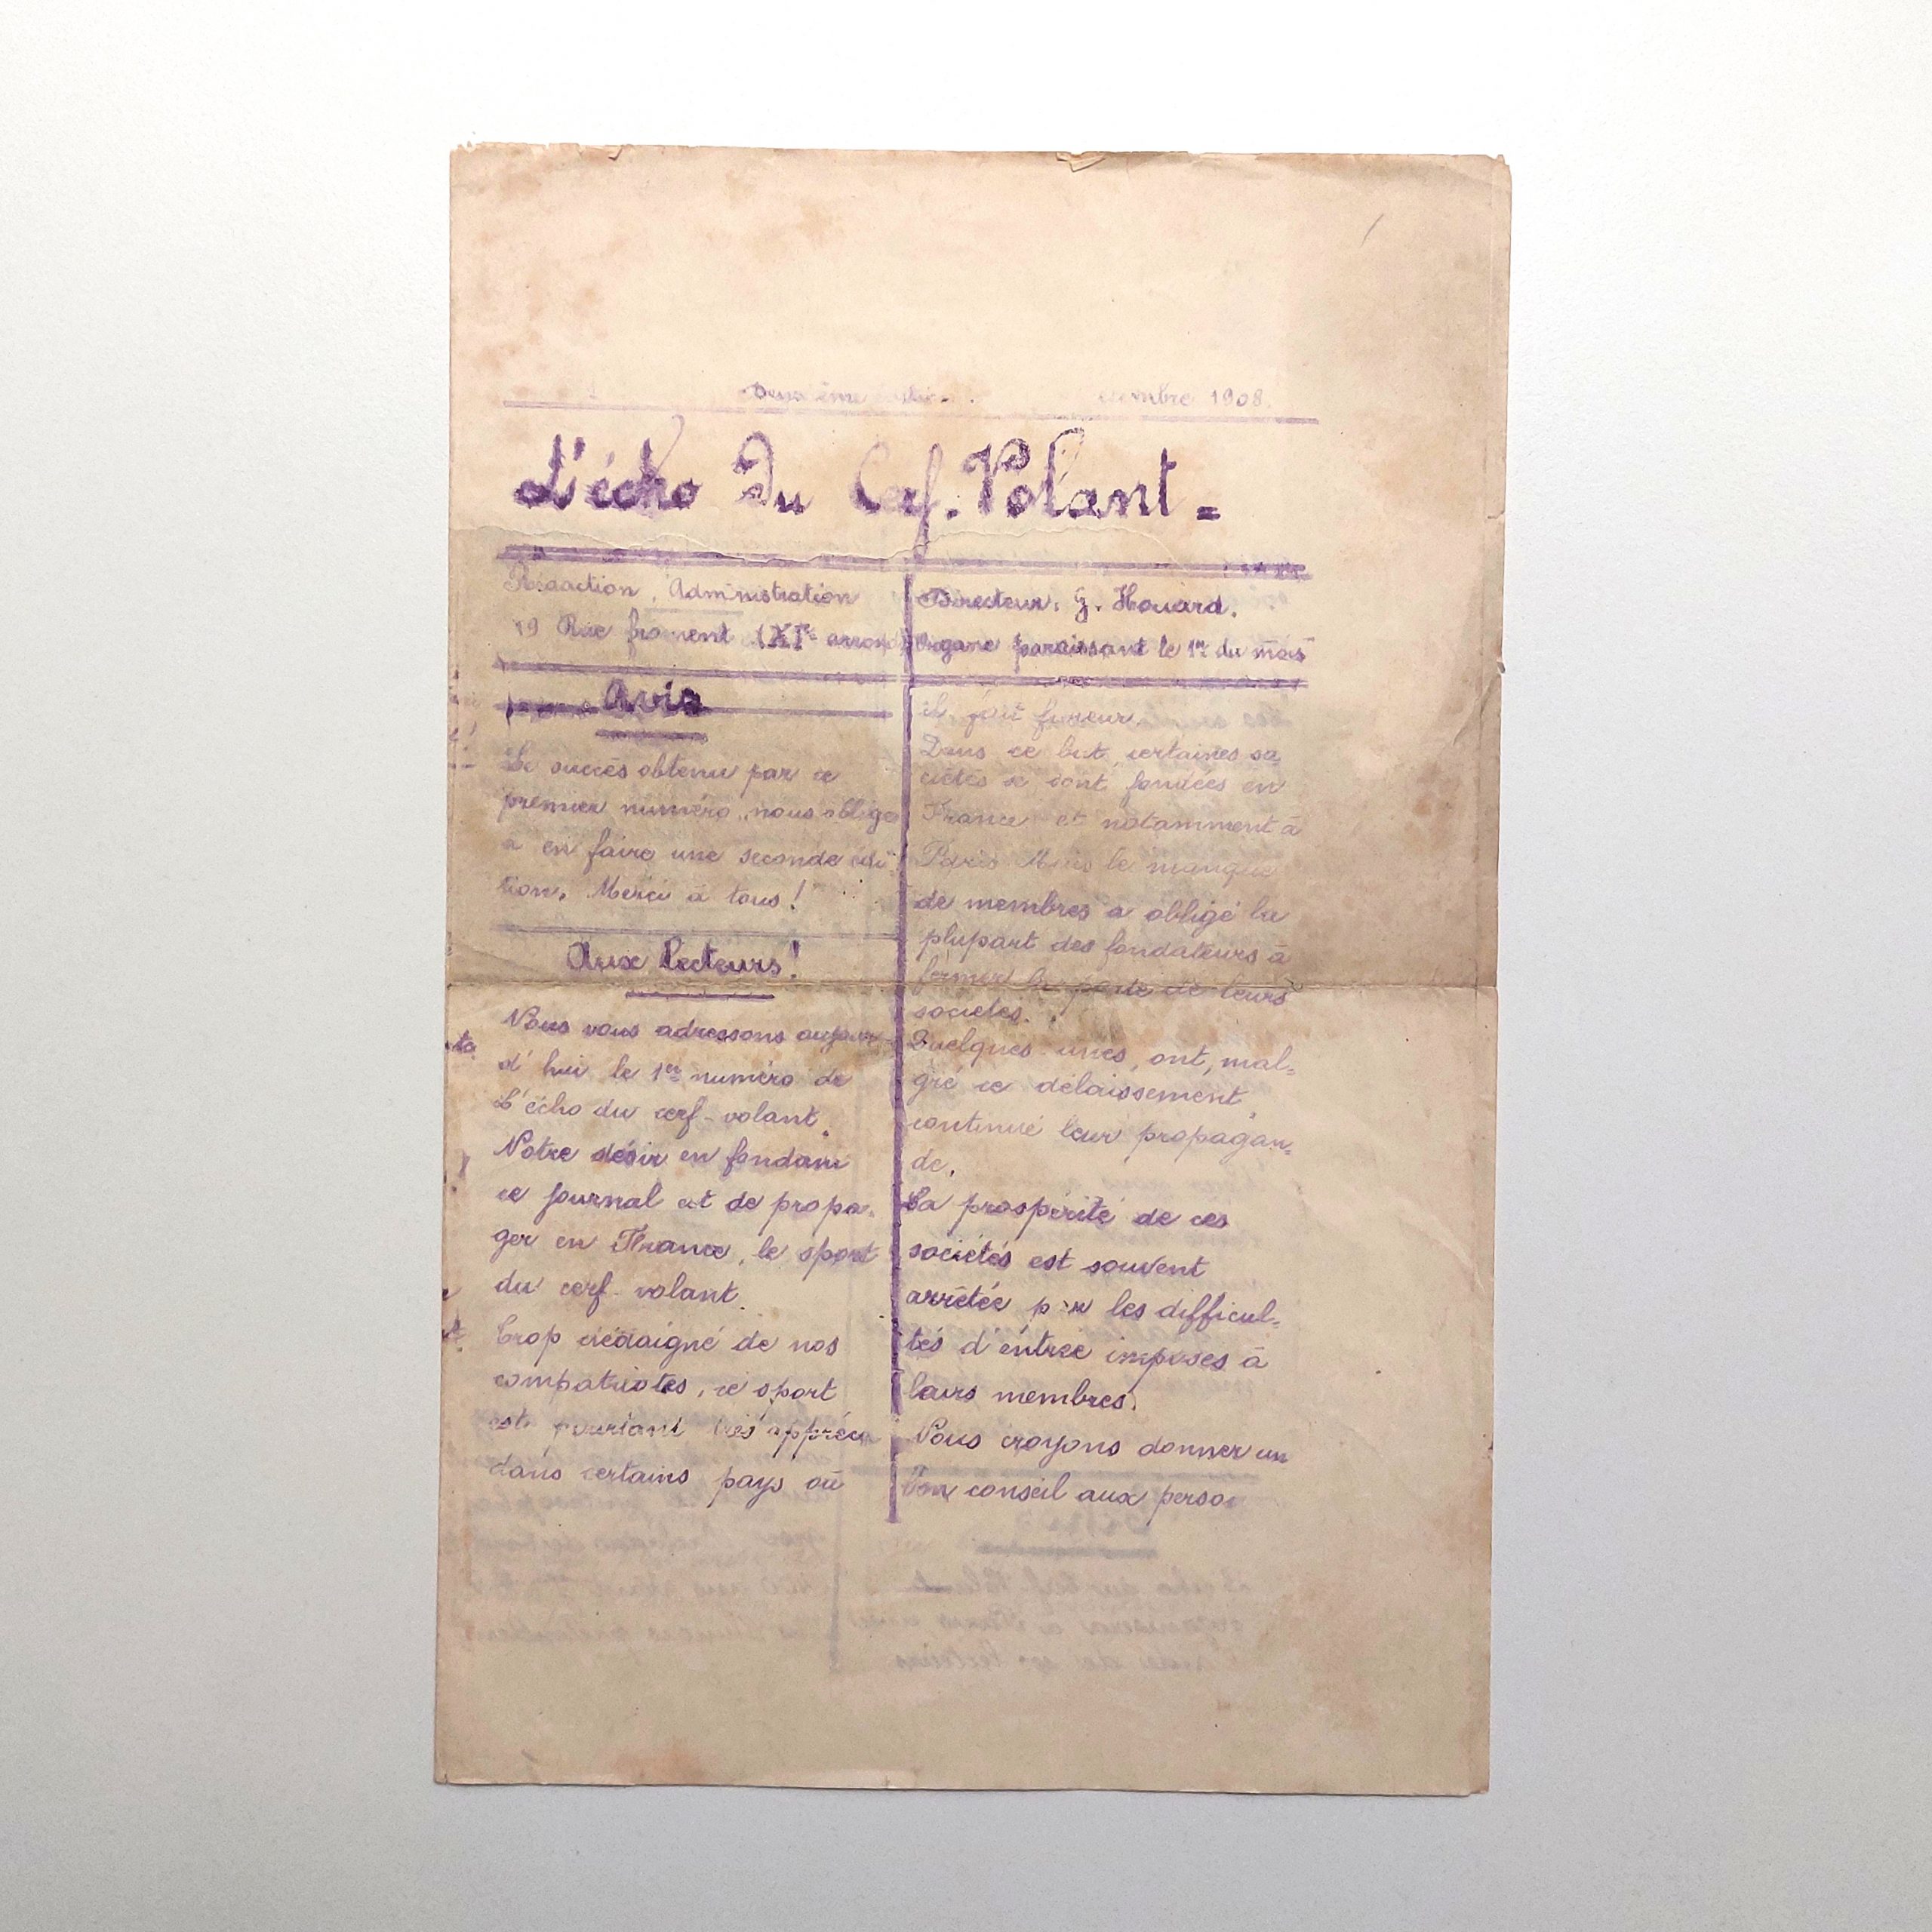 Deuxième
embre 1908.
L'écho Du Cerf-Volant=
Rédaction, Administration
19 Rue froment (XIe arrond)
Directeur: G. Houard.
Organe paraissant le 1er du mois
Avis
Le succès obtenu par ce
premier numéro, nous oblige
a en faire une seconde édi
tion. Merci à tous!
Aux Lecteurs!
Nous vous adressons aujour
d'hui le 1er numéro de
L'écho du cerf-volant.
Notre désir en fondant
ce journal est de propa-
ger en France, le sport
du cerf-volant.
Trop dédaigné de nos
compatriotes, ce sport
est pourtant très apprécié
dans certains pays où
il fait fureur.
Dans ce but, certaines so
ciétés se sont fondées en
France et notamment à
Paris. Mais le manque
de membres a obligé la
plupart des fondateurs à
fermer la porte de leurs
sociétés.
Quelques unes, ont, mal=
gré ce délaissement,
continué leur propagan=
de.
La prospérité de ces
sociétés est souvent
arrêtée par les difficul=
tés d'entrée imposes à
leurs membres.
Nous croyons donner un
bon conseil aux person